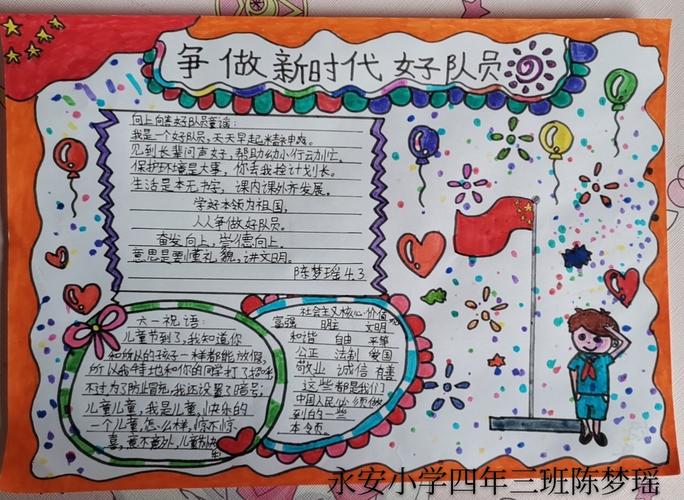 争做新时代好队员
向上向善好队员童谣:
我是一个好队员,天天早起精神爽。
见到长辈问声好,帮助幼小行动忙。
保护环境是大事,你丢我捡计划长。
生活是本无字书,课内课外齐发展。
学好本领为祖国,
人人争做好队员。
奋发向上,崇德向上。
意思是要懂礼貌,讲文明。
陈梦瑶4.3
六一祝语:
儿童节到了,我知道你
和所以的孩子一样都能放假,
所以我特地和你的同学打了招呼
不过为了防止冒充,我还设置了暗号:
儿童儿童,我是儿童,快乐的
一个儿童,怎么样,惊不惊
喜,意不意外,儿童节快
乐
社会主义核心价值
富强 民主 文明
和谐 自由 平等
公正 法制 爱国
敬业 诚信 友善
这些都是我们
中国人民必须做
到的一些
本令员。
永安小学四年三班陈梦瑶